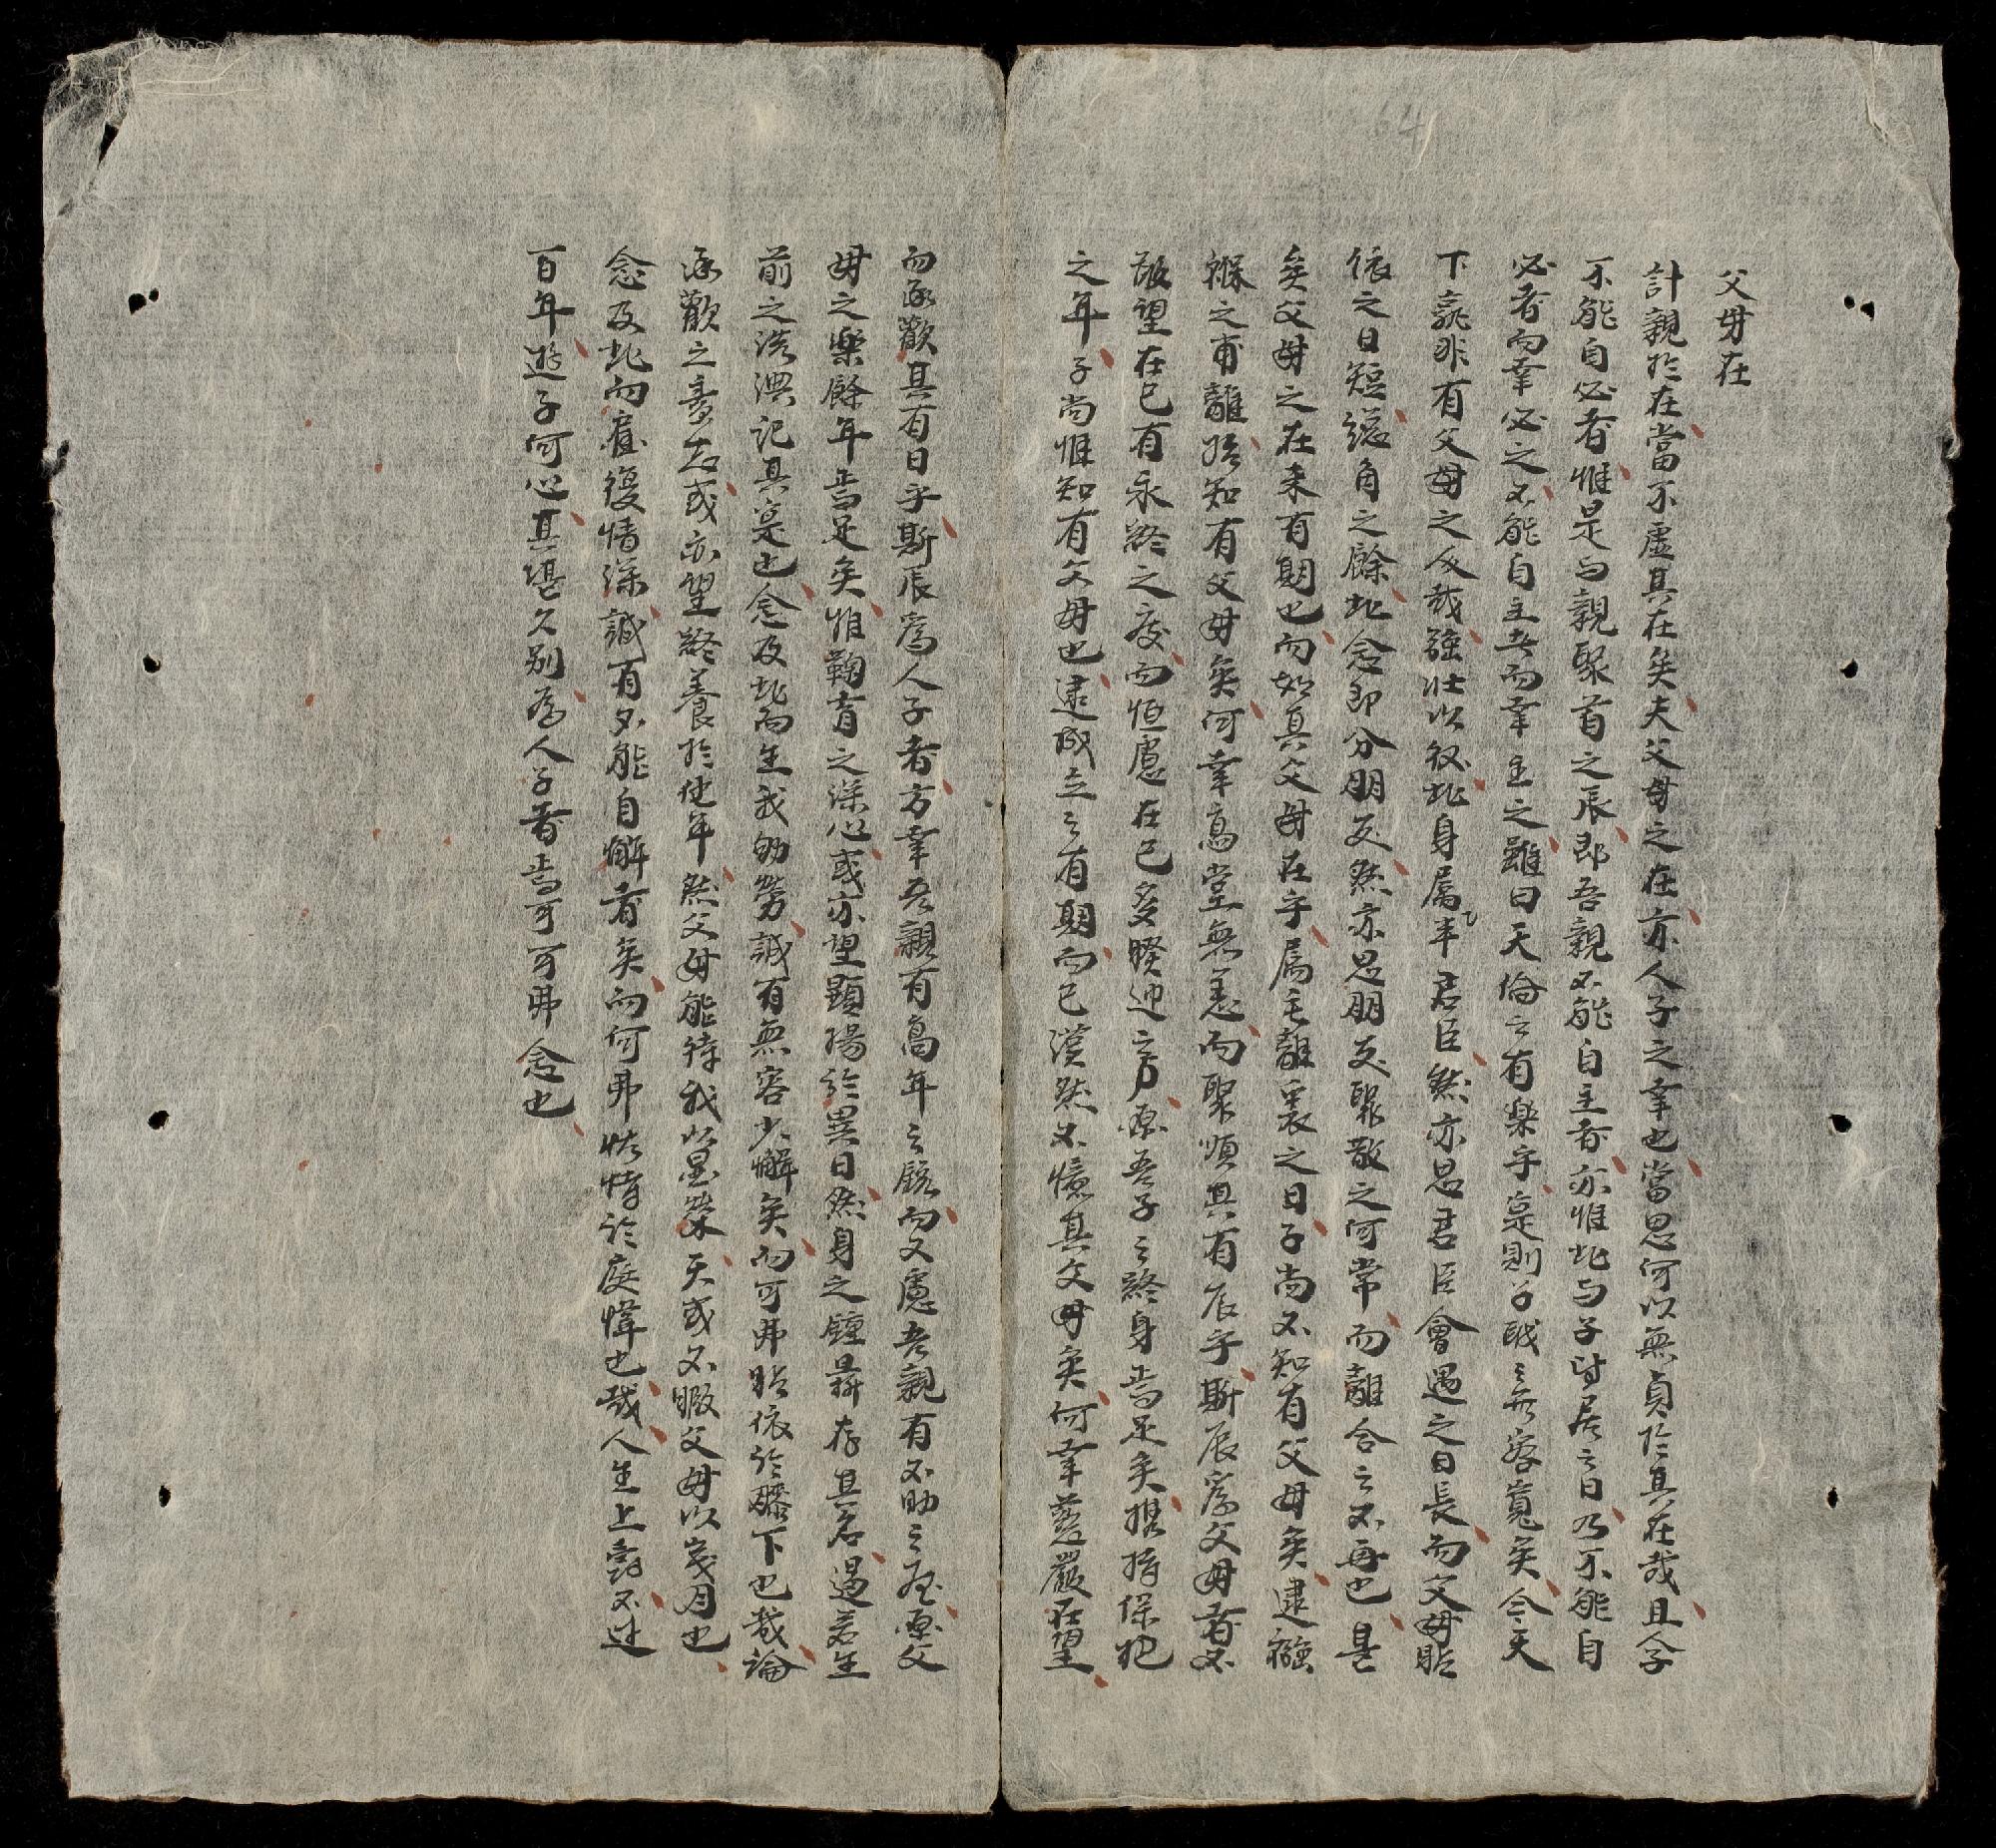 父母在
計親於在當不虛其在矣夫父母之在亦人子之幸也當思何以無負於其在哉且人子
不能自必者惟是与親聚首之辰即吾親不能自主者亦惟此与子時居之日乃不能自
必者而幸必之不能自主者而幸主之雖曰天倫之有樂乎寔則子職之無容寬矣今天
下孰非有父母之人哉強壯以後此身属半君臣然亦思君臣會遇之日長而父母貽
依之日短總角之餘此念即分朋友然亦思朋友聚散之何常而離合之不再也是
矣父母之在来有期也而如其父母在乎属毛離裏之日子尚不知有父母矣逮襁
褓之甫離始知有父母矣何幸高堂無恙而聚順其有辰乎斯辰為父母者不
敢望在己有永終之慶而恒慮在己多暌迎之方原吾子之終身焉足矣提携保抱
之年子尚惟知有父母也逮成立之有期而已漠然不憶其父母矣何幸慈嚴在望
而承歡其有日乎斯辰為人子者方幸吾親有高年之錫而又慮吾親有不助之產原父
母之樂餘年焉足矣惟鞠育之深心或亦望顯揚於異日然身之鐘鼎存其名過若生
前之洗腆記其寔也念及此而生我劬勞誠有無容少懈矣而可弗貽依於膝下也哉論
承歡之素志或亦望終養於他年然父母能待我以显荣天或不暇父母以歲月也
念及此而雇復情深誠有不能自懈者矣而何弗怙恃於庭幃也哉人生上壽不过
百年遊子何心其堪久别為人子者焉可可弗念也